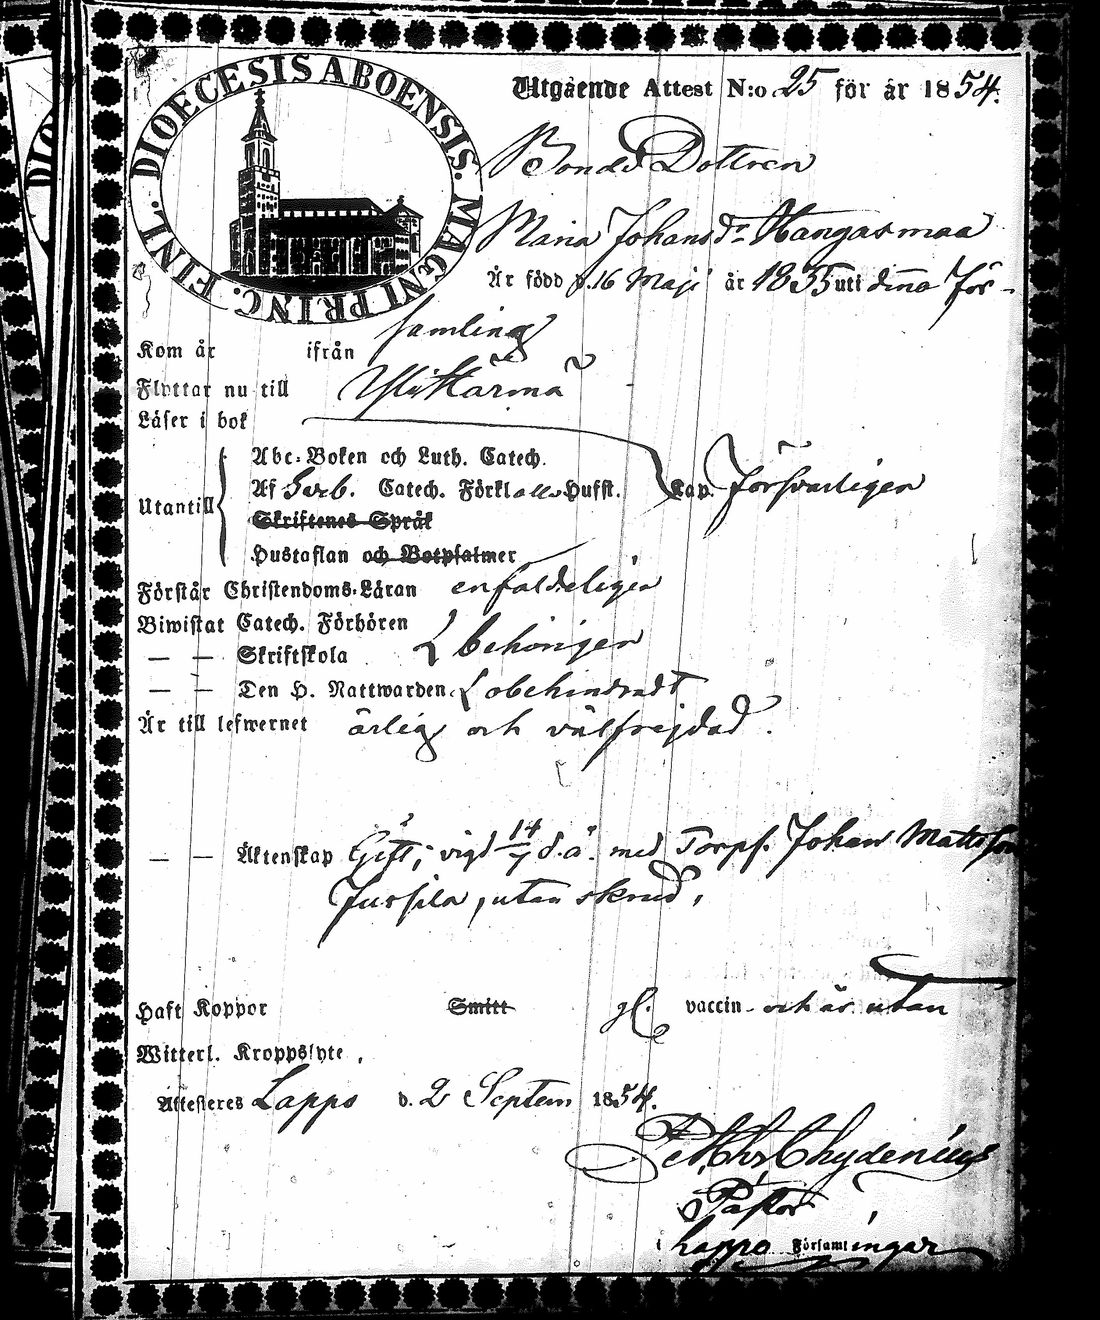 DIOECESIS ABOENSIS. MAGNI PRINC. FINL.
Utgående Attest N:o 25 för år 1854.
Bonde Dottren
Maria Johansdr Hangasmaa
Är född d. 16 Maji år 1835 uti denna För-
samling
Kom år ifrån
Flyttar nu till Ylihärmä
Läser i bok
Abc-Boken och Luth. Catech.
Utantill Af Sveb. Catech. Förkl. alla Hufst. Cap. försvarligen
Skriftenes Språk
Hustaflan och Botpsalmer
Förstår Christendoms-Läran enfaldeligen
Biwistat Catech. Förhören
— — Skriftskola behörigen
— — Den H. Nattwarden obehindradt
Är till lefwernet ärlig och välfrejdad.
— — Äktenskap Gift; vigd 14/7 d. å. med Torp. Johan Mattsson
Jussila, utan skrud.
Haft Koppor Smitt vaccin och är utan
Witterl. Kroppslyte,
Attesteres Lappo d. 2 Septem 1854.
Chydenius
Pastor
i Lappo Församlingar